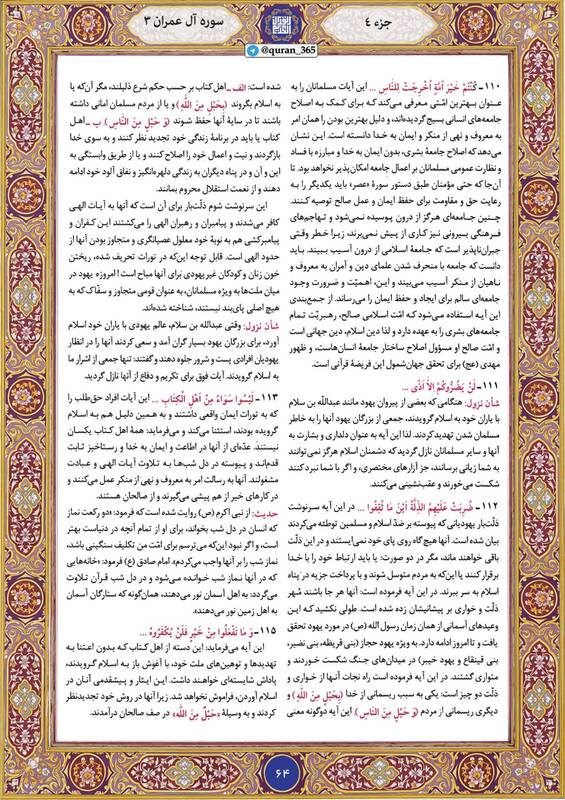 جزء ٤
سوره آل عمران ٣
@quran_365
١١٠- كُنْتُمْ خَيْرَ أُمَّةٍ أُخْرِجَتْ لِلنَّاسِ ... این آیات مسلمانان را به
عنوان بهترین امّتی معرفی می‌کند که برای کمک به اصلاح
جامعه‌های انسانی بسیج گردیده‌اند، و دلیل بهترین بودن را همان امر
به معروف و نهی از منکر و ایمان به خدا دانسته است. این نشان
می‌دهد که اصلاح جامعهٔ بشری، بدون ایمان به خدا و مبارزه با فساد
و نظارت عمومی مسلمانان بر اعمال جامعه امکان‌پذیر نخواهد بود. تا
آن‌جا که حتی مؤمنان طبق دستور سورهٔ «عصر» باید یکدیگر را به
رعایت حق و مقاومت برای حفظ ایمان و عمل صالح توصیه کنند.
چنین جامعه‌ای هرگز از درون پوسیده نمی‌شود و تهاجم‌های
فرهنگی بیرونی نیز کاری از پیش نمی‌برند، زیرا خطر وقتی
جبران‌ناپذیر است که جامعهٔ اسلامی از درون آسیب ببیند. باید
دانست که جامعه با منحرف شدن علمای دین و آمران به معروف و
ناهیان از منکر آسیب می‌بیند و این، اهمیّت و ضرورت وجود
جامعه‌ای سالم برای ایجاد و حفظ ایمان را می‌رساند. از جمع‌بندی
این آیه استفاده می‌شود که امّت اسلامی صالح، رهبریّت تمام
جامعه‌های بشری را به عهده دارد و لذا دین اسلام، دین جهانی است
و امّت صالح او مسؤول اصلاح ساختار جامعهٔ انسان‌هاست، و ظهور
مهدی (عج) برای تحقق جهان‌شمول این فریضهٔ قرآنی است.
١١١- لَنْ يَضُرُّوكُمْ اِلاّ اَذًى ...
شأن نزول: هنگامی که بعضی از پیروان یهود مانند عبداللّه بن سلام
با یاران خود به اسلام گرویدند، جمعی از بزرگان یهود آنها را به خاطر
مسلمان شدن تهدید کردند. لذا این آیه به عنوان دلداری و بشارت به
آنها و سایر مسلمانان نازل گردید که دشمنان اسلام هرگز نمی‌توانند
به شما زیانی برسانند، جز آزارهای مختصری، و اگر با شما نبرد کنند
شکست می‌خورند و عقب‌نشینی می‌کنند.
١١٢- ضُرِبَتْ عَلَيْهِمُ الذِّلَّةُ اَيْنَ مَا ثُقِفُوا ... در این آیه سرنوشت
ذلّت‌بار یهودیانی که پیوسته بر ضدّ اسلام و مسلمین توطئه می‌کردند
بیان شده است. آنها هیچ‌گاه روی پای خود نمی‌ایستند و در این ذلّت
باقی خواهند ماند، مگر در دو صورت: یا باید ارتباط خود را با خدا
برقرار کنند یا این‌که به مردم متوسل شوند و با پرداخت جزیه در پناه
اسلام به سر ببرند. در این آیه فرموده است: آنها هر جا باشند مُهر
ذلّت و خواری بر پیشانیشان زده شده است. طولی نکشید که این
وعیدهای آسمانی از همان زمان رسول الله (ص) در مورد یهود تحقق
یافت و تا امروز ادامه دارد. به ویژه یهود حجاز (بنی قریظه، بنی نضیر،
بنی قینقاع و یهود خیبر) در میدان‌های جنگ شکست خوردند و
متواری گشتند. در این آیه فرموده است راه نجات آنها از خواری و
ذلّت دو چیز است: یکی به سبب ریسمانی از خدا (بِحَبْلٍ مِنَ اللّهِ) و
دیگری ریسمانی از مردم (وَ حَبْلٍ مِنَ النّاسِ) این آیه دوگونه معنی
شده است: الف ـ اهل کتاب بر حسب حکم شرع ذلیلند، مگر آن‌که یا
به اسلام بگروند (بِحَبْلٍ مِنَ اللّهِ) و یا از مردم مسلمان امانی داشته
باشند تا در سایهٔ آنها حفظ شوند (وَ حَبْلٍ مِنَ النّاسِ) ب ـ اهل
کتاب یا باید در برنامهٔ زندگی خود تجدید نظر کنند و به سوی خدا
بازگردند و نیت و اعمال خود را اصلاح کنند و یا از طریق وابستگی به
این و آن و در پناه دیگران به زندگی دلهره‌انگیز و نفاق آلود خود ادامه
دهند و از نعمت استقلال محروم بمانند.
این سرنوشت شوم ذلّت‌بار برای آن است که آنها به آیات الهی
کافر می‌شدند و پیامبران و رهبران الهی را می‌کشتند این کفران و
پیامبرکشی هم به نوبهٔ خود معلول عصیانگری و متجاوز بودن آنها از
حدود الهی است. قابل توجه این‌که در تورات تحریف شده، ریختن
خون زنان و کودکان غیریهودی برای آنها مباح است! امروزه یهود در
میان ملت‌ها به ویژه مسلمانان، به عنوان قومی متجاوز و سفّاک که به
هیچ اصلی پای‌بند نیستند، شناخته شده‌اند.
شأن نزول: وقتی عبدالله بن سلام، عالم یهودی با یاران خود اسلام
آورد، برای بزرگان یهود بسیار گران آمد و سعی کردند آنها را در انظار
یهودیان افرادی پست و شرور جلوه دهند و گفتند: تنها جمعی از اشرار ما
به اسلام گرویدند. آیات فوق برای تکریم و دفاع از آنها نازل گردید.
١١٣- لَيْسُوا سَوَاءً مِنْ اَهْلِ الْكِتَابِ ... این آیات افراد حق‌طلب را
که به تورات ایمان واقعی داشتند و به همین دلیل هم به اسلام
گرویده بودند، استثنا می‌کند و می‌فرماید: همهٔ اهل کتاب یکسان
نیستند. عده‌ای از آنها در اطاعت و ایمان به خدا و رستاخیز ثابت
قدم‌اند و پیوسته در دل شب‌ها به تلاوت آیات الهی و عبادت
مشغولند. آنها به رسالت امر به معروف و نهی از منکر عمل می‌کنند و
در کارهای خیر از هم پیشی می‌گیرند و از صالحان هستند.
حدیث: از نبی اکرم (ص) روایت شده است که فرمود: «دو رکعت نماز
که انسان در دل شب بخواند، برای او از تمام آنچه در دنیاست بهتر
است، و اگر نبود این‌که می‌ترسم برای امّت من تکلیف سنگینی باشد،
نماز شب را بر آنها واجب می‌کردم». امام صادق (ع) فرمود: «خانه‌هایی
که در آنها نماز شب خوانده می‌شود و در دل شب قرآن تلاوت
می‌گردد: به اهل آسمان نور می‌دهند، همان‌گونه که ستارگان آسمان
به اهل زمین نور می‌دهند».
١١٥- وَ مَا تَفْعَلُوا مِنْ خَيْرٍ فَلَنْ يُكْفَرُوهُ ...
این آیه می‌فرماید: این دسته از اهل کتاب که بدون اعتنا به
تهدیدها و توهین‌های ملت خود، با آغوش باز به اسلام گرویدند،
پاداش شایسته‌ای خواهند داشت. این ایثار و پیشقدمی آنان در
اسلام آوردن، فراموش نخواهد شد. زیرا آنها در روش خود تجدیدنظر
کردند و به وسیلهٔ «حَبْلٍ مِنَ اللّهِ» در صف صالحان درآمدند.
٦٤